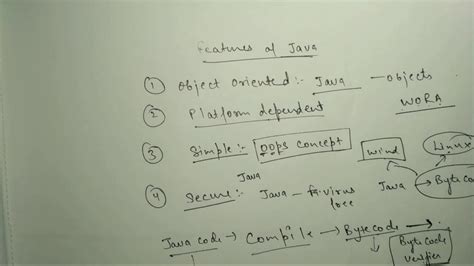 Features of Java
① Object oriented:- Java — objects
② Platform dependent WORA
③ Simple:- OOPS concept wind Linux
Java
④ Secure:- Java — virus free Java Byte Co
Java code → Compile → Bytecode →
Byte Code
Verifier